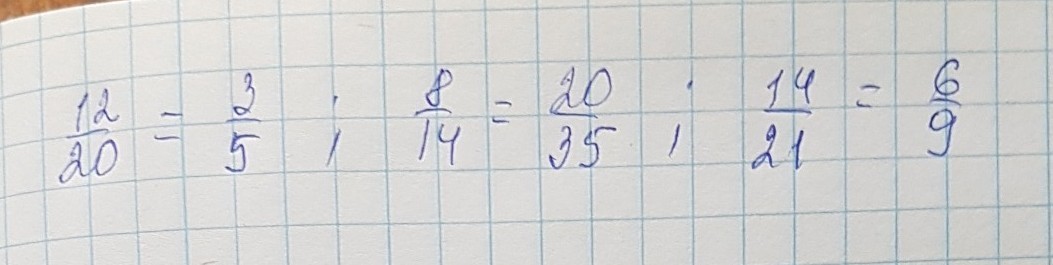 12/20 = 3/5 ; 8/14 = 20/35 ; 14/21 = 6/9